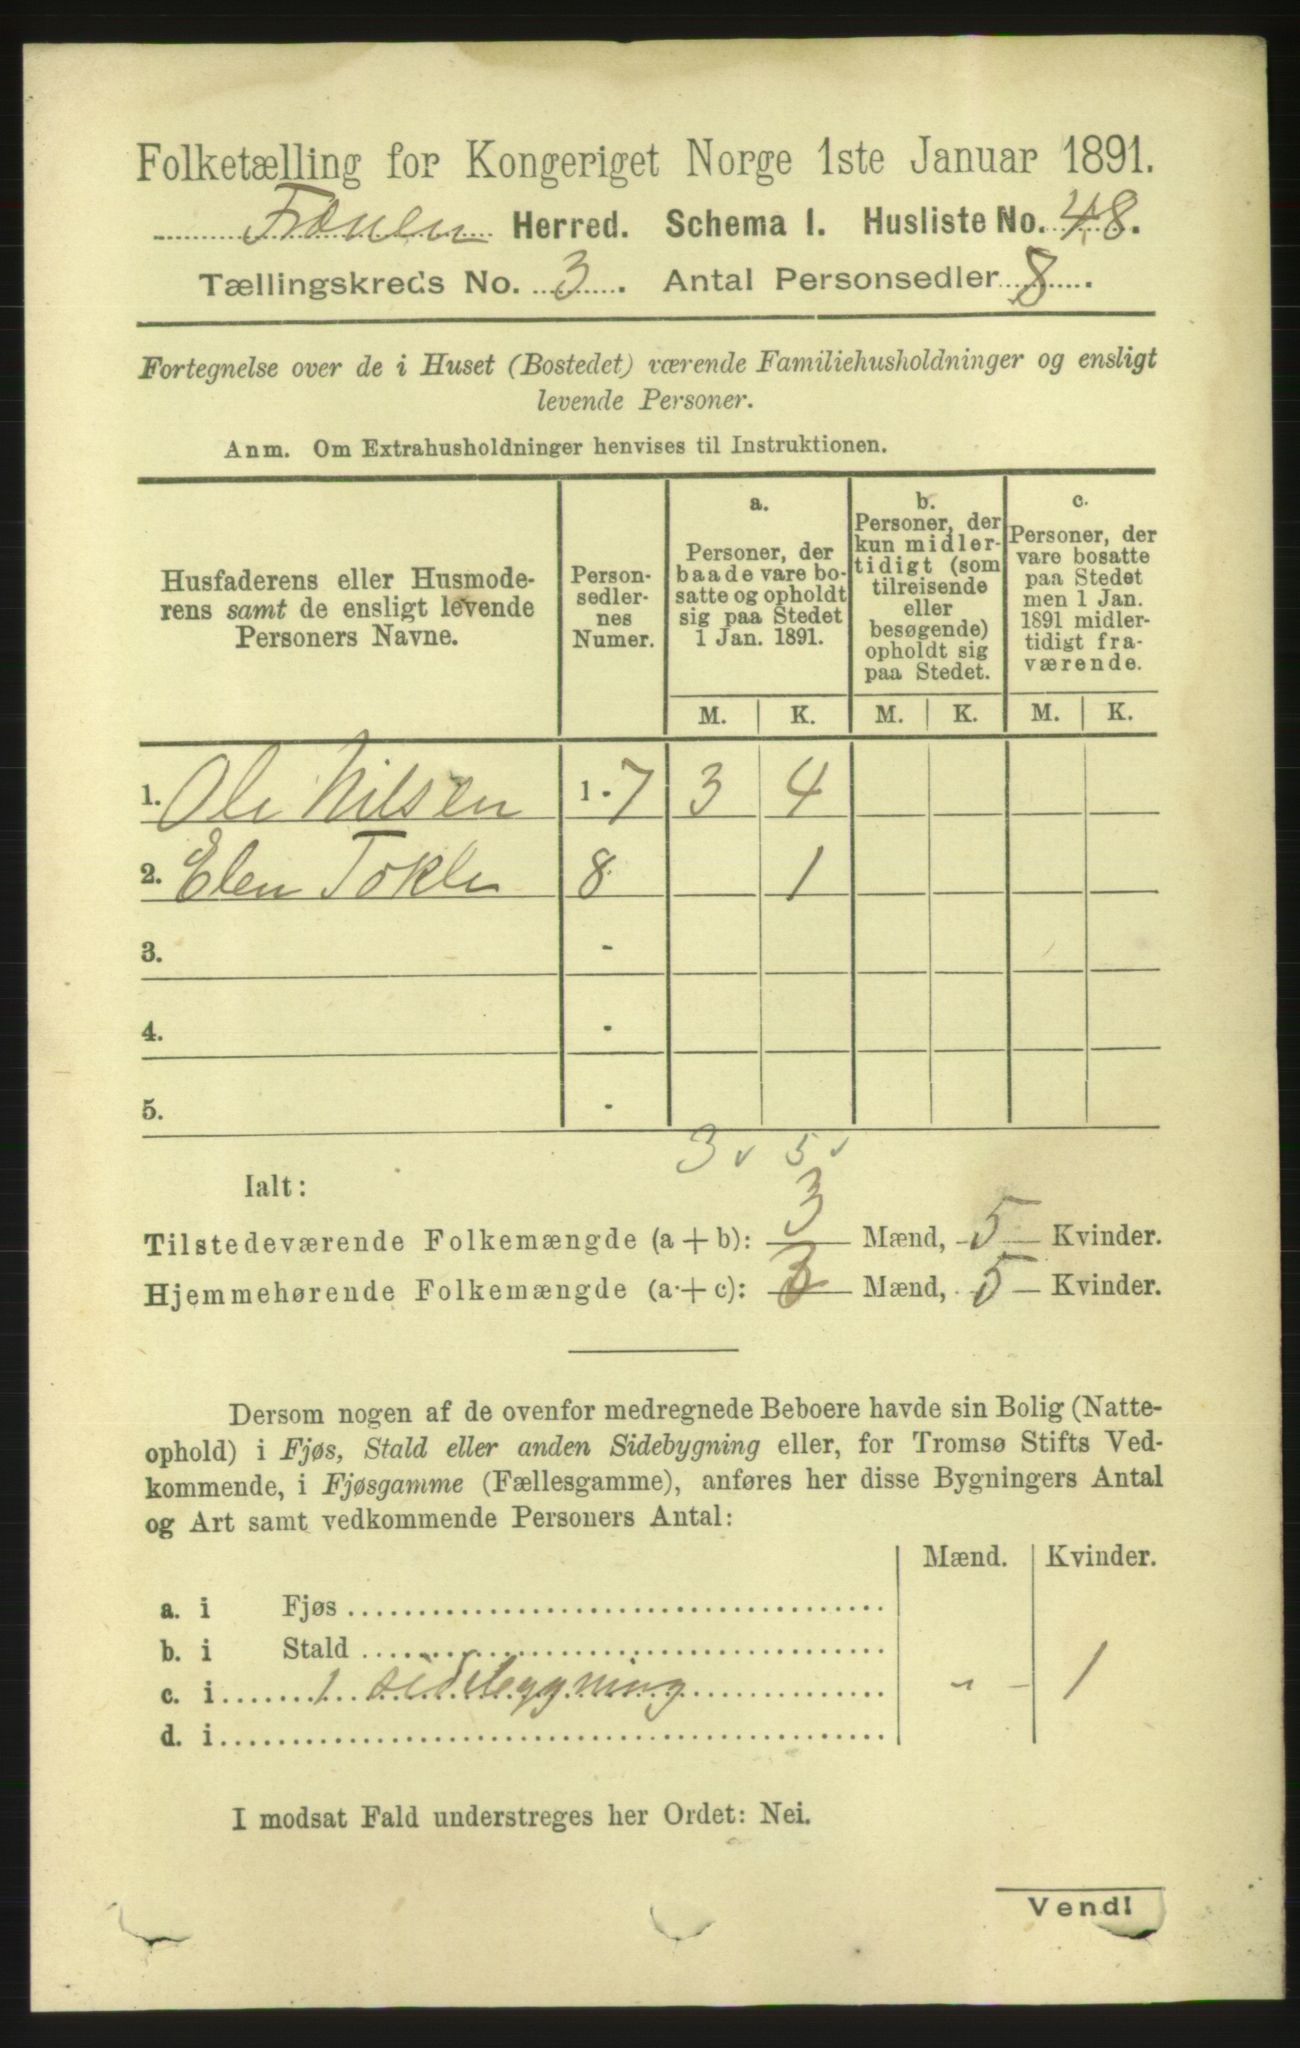 Folketælling for Kongeriget Norge 1ste Januar 1891.
Frænen Herred. Schema I. Husliste No. 48.
Tællingskreds No. 3. Antal Personsedler 8.
Fortegnelse over de i Huset (Bostedet) værende Familiehusholdninger og ensligt
levende Personer.
Anm. Om Extrahusholdninger henvises til Instruktionen.
Husfaderens eller Husmode-
rens samt de ensligt levende
Personers Navne.
Person-
sedler-
nes
Numer.
a.
Personer, der
baade vare bo-
satte og opholdt
sig paa Stedet
1 Jan. 1891.
b.
Personer, der
kun midler-
tidigt (som
tilreisende
eller
besøgende)
opholdt sig
paa Stedet.
c.
Personer, der
vare bosatte
paa Stedet
men 1 Jan.
1891 midler-
tidigt fra-
værende.
M. K. M. K. M. K.
1. Ole Nilsen 1 - 7 3 4
2. Elen Tokle 8 1
3. -
4. -
5. -
3 v 5 v
Ialt:
Tilstedeværende Folkemængde (a + b): 3 Mænd, 5 Kvinder.
Hjemmehørende Folkemængde (a + c): 3 Mænd, 5 Kvinder.
Dersom nogen af de ovenfor medregnede Beboere havde sin Bolig (Natte-
ophold) i Fjøs, Stald eller anden Sidebygning eller, for Tromsø Stifts Ved-
kommende, i Fjøsgamme (Fællesgamme), anføres her disse Bygningers Antal
og Art samt vedkommende Personers Antal:
Mænd. Kvinder.
a. i Fjøs
b. i Stald
c. i 1 sidebygning " - 1
d. i
I modsat Fald understreges her Ordet: Nei.
Vend!